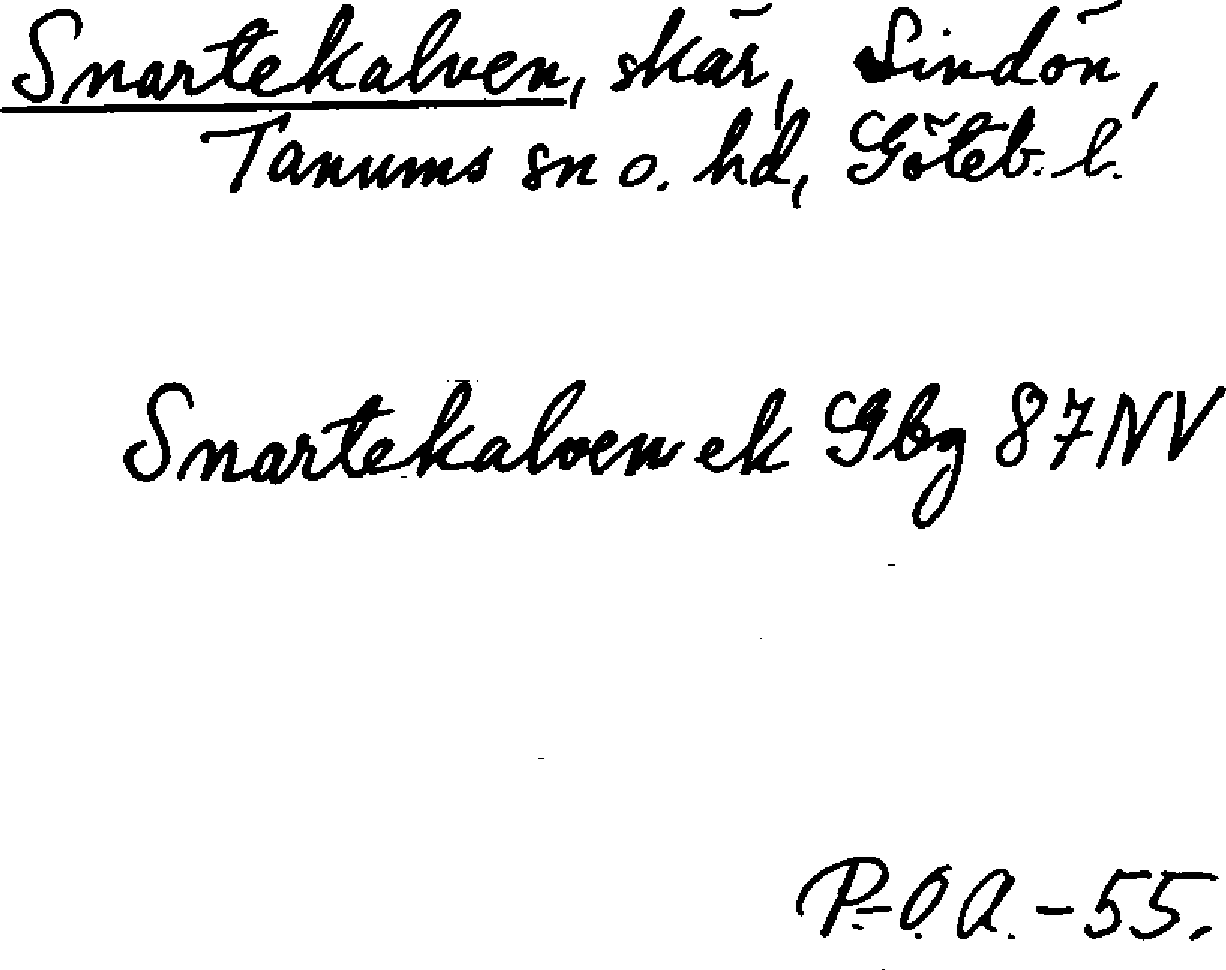 Snartekalven, skär, Sindön,
Tanums sn o. hd, Göteb. l.
Snartekalven ek Gbg 87 NV
P.-O. A. -55.